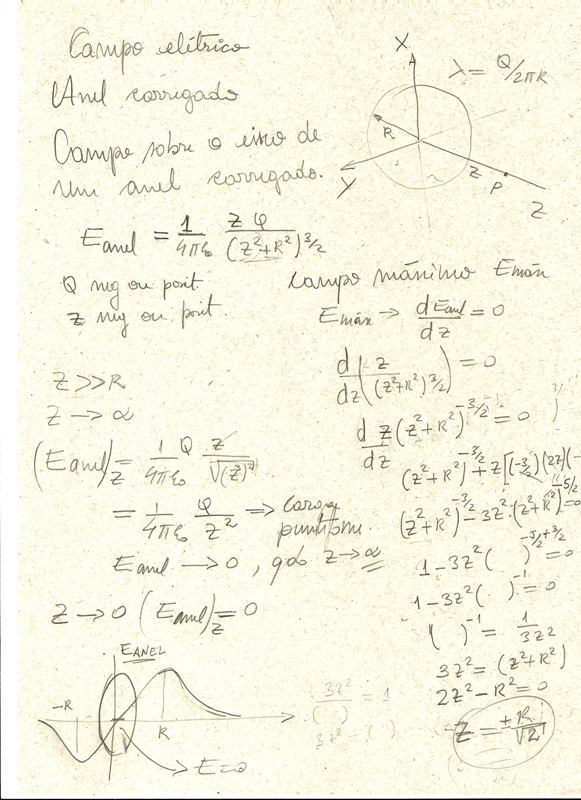 Campo elétrico
Anel carregado
Campo sobre o eixo de
um anel carregado.
X
A
λ = Q/2πR
R
Y
Z
P
Z
E_anel = 1/4πε₀ ZQ/(Z²+R²)^3/2
Q neg ou posit.
Z neg ou posit.
Campo máximo Emáx
Emáx → dEanel/dz = 0
d/dz (z/(z²+R²)^3/2) = 0
d/dz z(z²+R²)^-3/2 = 0
(z²+R²)^-3/2 + z[(-3/2)(2z)(-
(z²+R²)^-3/2 - 3z²·(z²+R²)^-5/2 = 0
1-3z²( )^-5/2+3/2 = 0
1-3z²( )^-1 = 0
( )^-1 = 1/3z²
3z² = (z²+R²)
2z²-R² = 0
Z = ±R/√2
Z >> R
Z → ∝
(Eanel)_Z = 1/4πε₀ Q z/√(z)²
= 1/4πε₀ Q/z² => Carga
puntiforme.
Eanel → 0, qdo Z → ∝
Z → 0 (Eanel)_Z = 0
EANEL
-R
R
E=0
3z²/( ) = 1
3z² = ( )